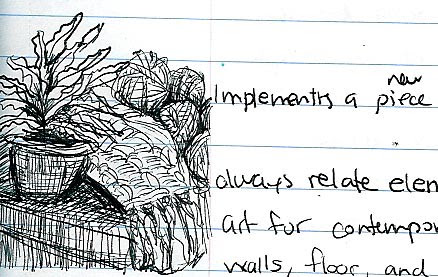 new
Implements a piece
always relate elen
art for contempor
walls, floor, and